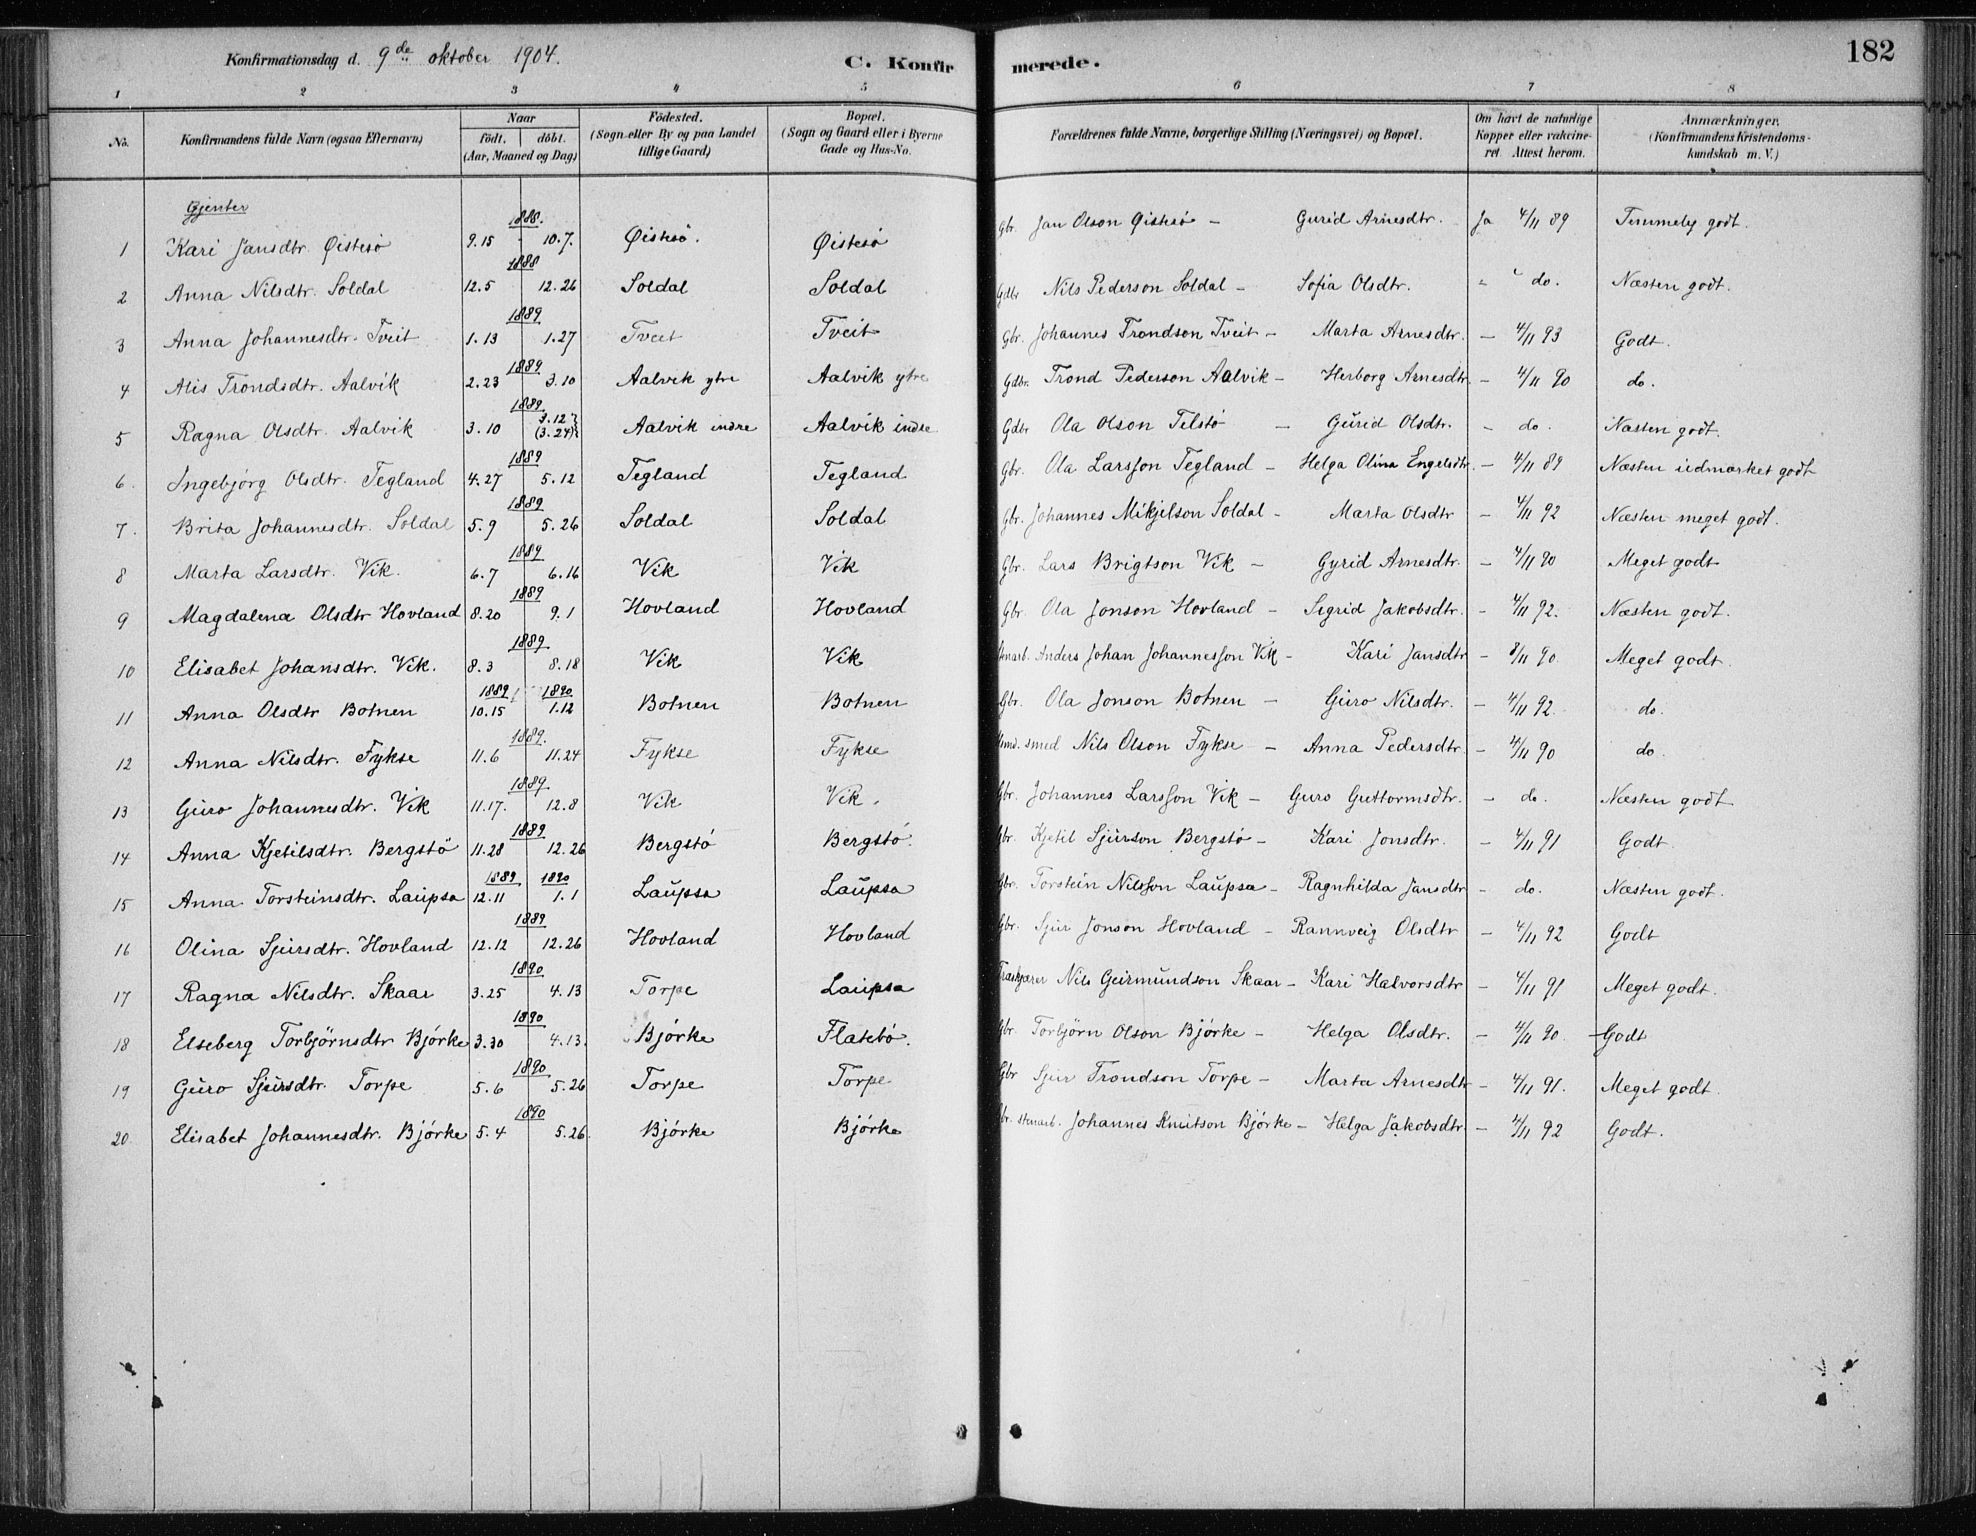 Konfirmationsdag d. 9de oktober 1904. C. Konfirmerede. 182
1 2 3 4 5 6 7 8
No. Konfirmandens fulde Navn (ogsaa Efternavn) Naar födt. döbt. (Aar, Maaned og Dag) Födested. (Sogn eller By og paa Landet tillige Gaard) Bopæl. (Sogn og Gaard eller i Byerne Gade og Hus-No. Forældrenes fulde Navne, borgerlige Stilling (Næringsvei) og Bopæl. Om havt de naturlige Kopper eller vakcineret. Attest herom. Anmærkninger. (Konfirmandens Kristendomskundskab m. V.)
Gjenter
1888.
1 Kari Jansdtr. Øistesö 9.15 10.7. Øistesö. Øistesö Gbr. Jan Olson Øistesö – Gurid Arnesdtr. Ja 4/11 89 Temmelig godt.
1888
2 Anna Nilsdtr. Soldal 12.5 12.26 Soldal Soldal Gdbr Nils Pederson Soldal – Sofia Olsdtr. " " do. Næsten godt.
1889
3 Anna Johannesdtr. Tveit 1.13 1.27 Tveit Tveit Gbr. Johannes Trondson Tveit – Marta Arnesdtr. – 4/11 93 Godt.
1889
4 Alis Trondsdtr. Aalvik 2.23 3.10 Aalvik ytre Aalvik ytre Gdbr. Trond Pederson Aalvik – Herborg Arnesdtr. – 4/11 90 do.
1889
5 Ragna Olsdtr. Aalvik 3.10 3.12 (3.24) Aalvik indre Aalvik indre Gdbr Ola Olson Telstö – Gurid Olsdtr. – do. Næsten godt.
1889
6. Ingebjörg Olsdtr. Tegland 4.27 5.12 Tegland Tegland Gbr. Ola Larsson Tegland – Helga Olina Engelsdtr. – 4/11 89 Næsten udmærket godt
1889
7. Brita Johannesdtr. Soldal 5.9 5.26 Soldal Soldal Gbr. Johannes Mikjelson Soldal – Marta Olsdtr – 4/11 92 Næsten meget godt.
1889
8 Marta Larsdtr. Vik. 6.7 6.16 Vik Vik Gbr. Lars Brigtson Vik – Gyrid Arnesdtr. – 4/11 90 Meget godt
1889
9 Magdalena Olsdtr Hovland 8.20 9.1 Hovland Hovland Gbr. Ola Jonson Hovland – Sigrid Jakobsdtr. – 4/11 92. Næsten godt.
1889
10 Elisabet Johansdtr. Vik. 8.3 8.18 Vik Vik Stenarb. Anders Johan Johannesson Vik – Kari Jansdtr – 8/11 90 Meget godt.
1889 1890
11 Anna Olsdtr Botnen 10.15 1.12 Botnen Botnen Gbr. Ola Jonson Botnen – Guro Nilsdtr. – 4/11 92. do.
1889.
12 Anna Nilsdtr. Fykse 11.6 11.24 Fykse Fykse smed Nils Olson Fykse – Anna Pedersdtr – 4/11 90 do.
1889
13 Guro Johannesdtr. Vik 11.17. 12.8 Vik Vik. Gbr. Johannes Larsson Vik – Guro Guttormsdtr. – do. Næsten godt
1889
14 Anna Kjetilsdtr. Bergstö 11.28 12.26 Bergstö Bergstö. Gbr. Kjetil Sjurson Bergstö – Kari Jonsdtr. – 4/11 91 Godt.
1889 1890
15 Anna Torsteinsdtr. Laupsa 12.11 1.1 Laupsa Laupsa Gbr. Torstein Nilsson Laupsa – Ragnhilda Jansdtr – do. Næsten godt.
1889
16 Olina Sjursdtr. Hovland 12.12 12.26 Hovland Hovland Gbr. Sjur Jonson Hovland – Rannveig Olsdtr – 4/11 92 Godt
1890
17 Ragna Nilsdtr. Skaar 3.25 4.13 Torpe Laupsa Nils Geirmundson Skaar – Kari Halvorsdtr – 4/11 91 Meget godt.
1890
18 Elseberg Torbjörnsdtr Bjórke 3.30 4.13. Bjórke Flatebö. Gbr. Torbjörn Olson Bjórke – Helga Olsdtr. – 4/11 90 Godt
1890
19 Guro Sjursdtr. Torpe 5.6 5.26 Torpe Torpe Gbr Sjur Trondson Torpe – Marta Arnesdtr – 4/11 91. Meget godt.
1890
20. Elisabet Johannesdtr. Bjórke 5.4 5.26. Bjórke Bjórke Gbr. stenarb. Johannes Knutson Bjórke – Helga Jakobsdtr – 4/11 92 Godt.